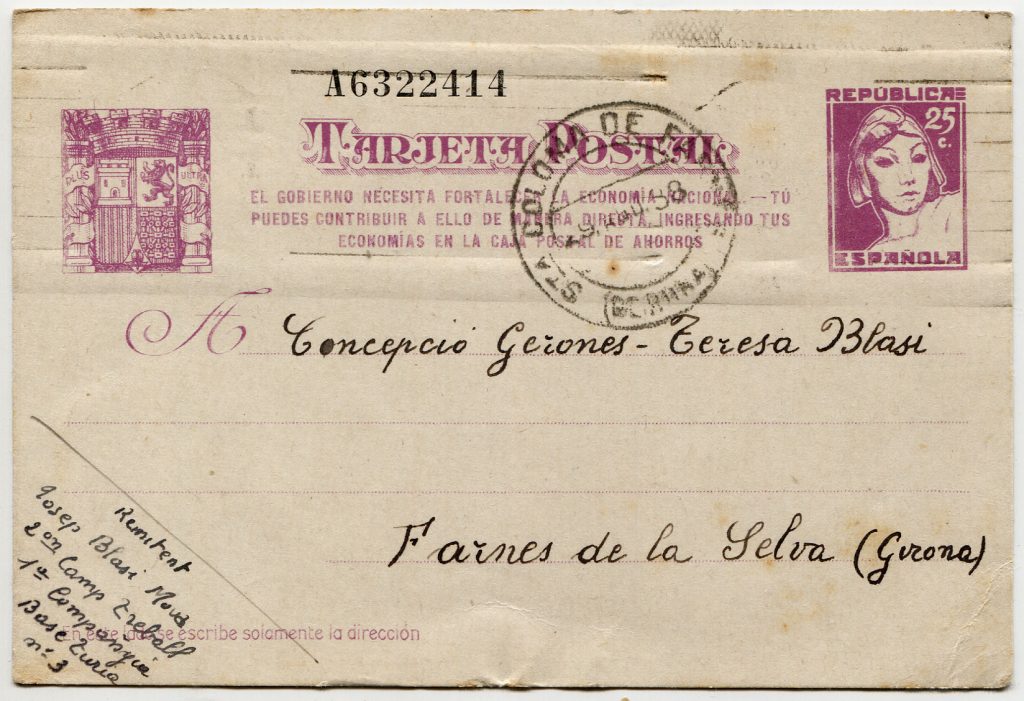 A6322414
TARJETA POSTAL
REPÚBLICA
25 c.
ESPAÑOLA
PLUS ULTRA
EL GOBIERNO NECESITA FORTALECER LA ECONOMÍA NACIONAL.—TÚ
PUEDES CONTRIBUIR A ELLO DE MANERA DIRECTA, INGRESANDO TUS
ECONOMÍAS EN LA CAJA POSTAL DE AHORROS
STA COLOMA DE
38
(GERUNA)
A Concepció Gerones - Teresa Blasi
Farnes de la Selva (Girona)
Remitent
Josep Blasi
2on Camp Treball
1a Companyia
Base Turia
nº 3
En este lado se escribe solamente la dirección